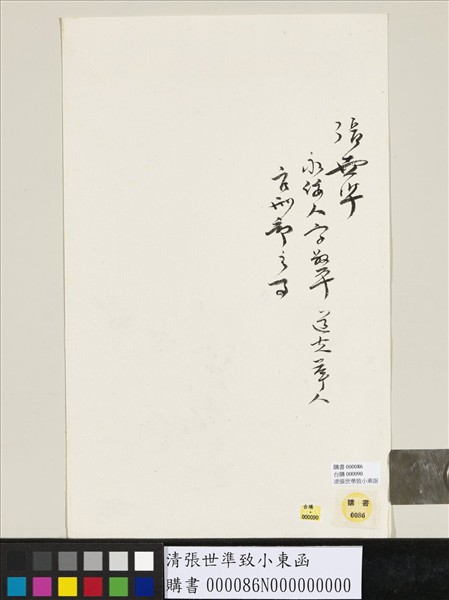 張世準
永綏人字叔平 道光舉人
官刑部主事
購書 000086
台購 000090
清張世準致小東函
台購
000090
購書
0086
清張世準致小東函
購書 000086N000000000